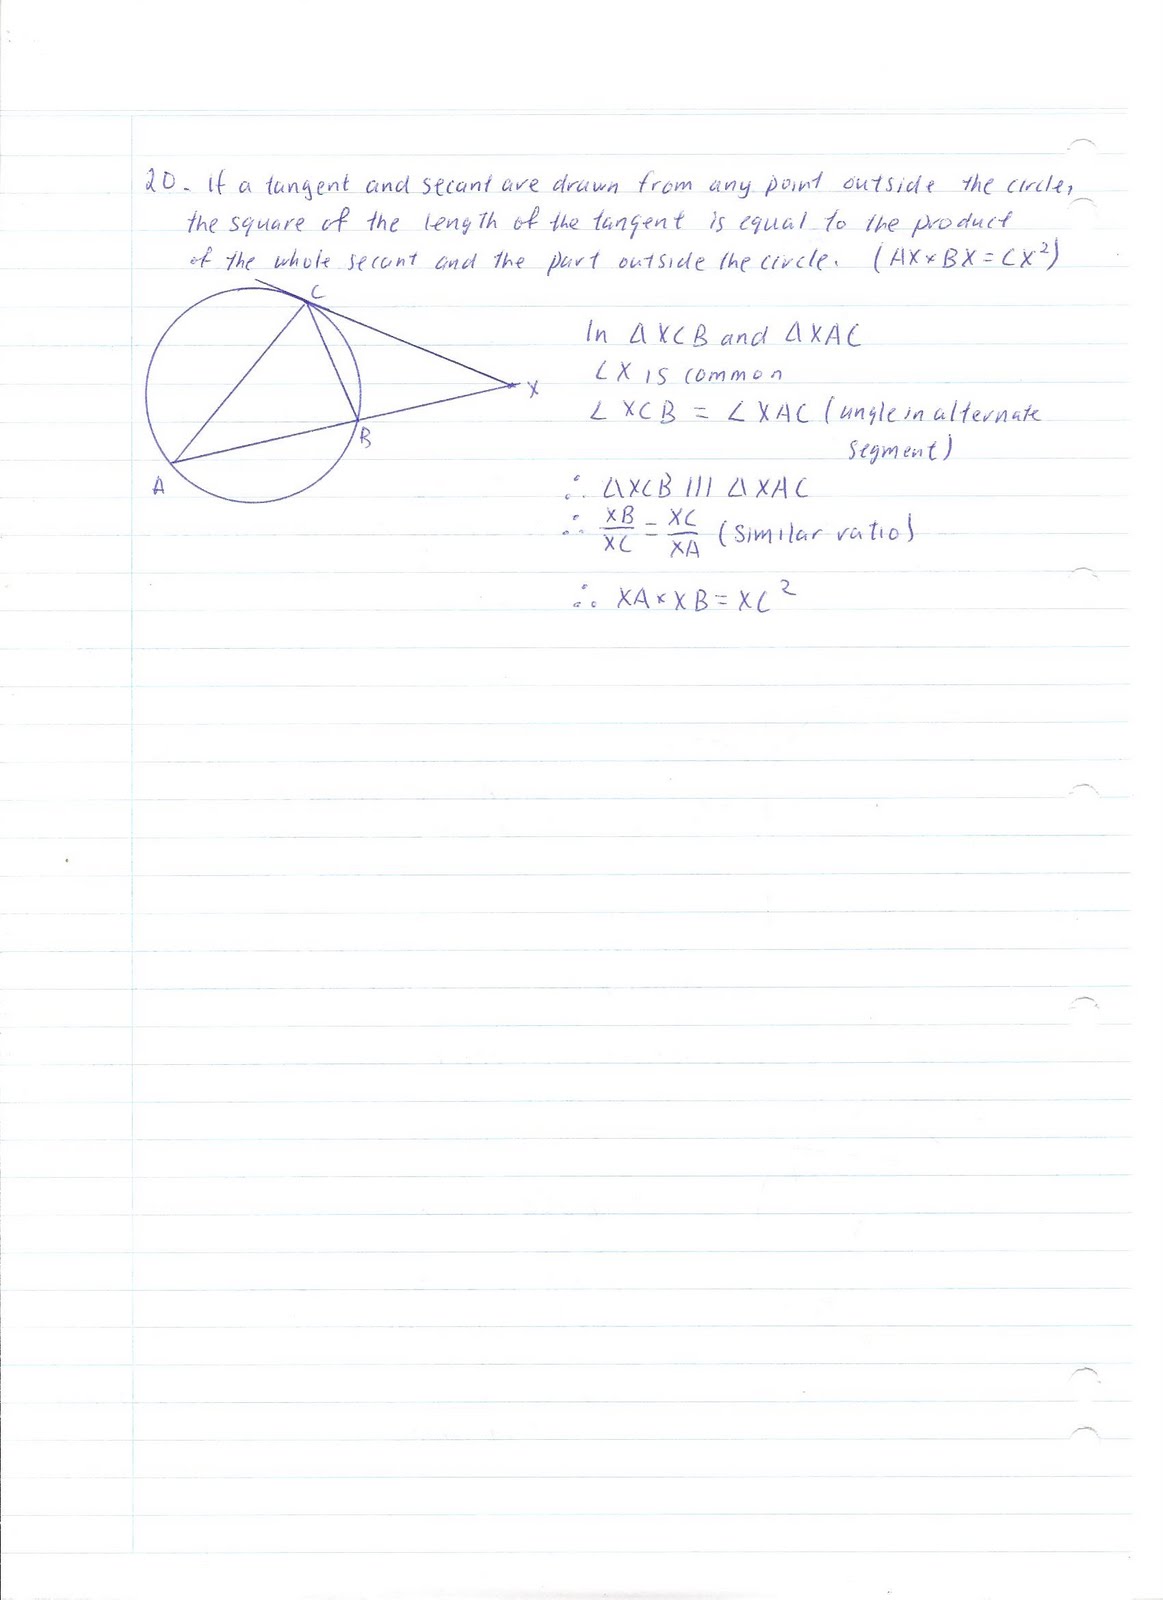 20. If a tangent and secant are drawn from any point outside the circle,
the square of the length of the tangent is equal to the product
of the whole secant and the part outside the circle. (AX×BX=CX²)
C
X
B
A
In ∆XCB and ∆XAC
∠X is common
∠XCB = ∠XAC (angle in alternate
segment)
∴ ∆XCB ||| ∆XAC
∴ XB/XC = XC/XA (similar ratio)
∴ XA×XB=XC²